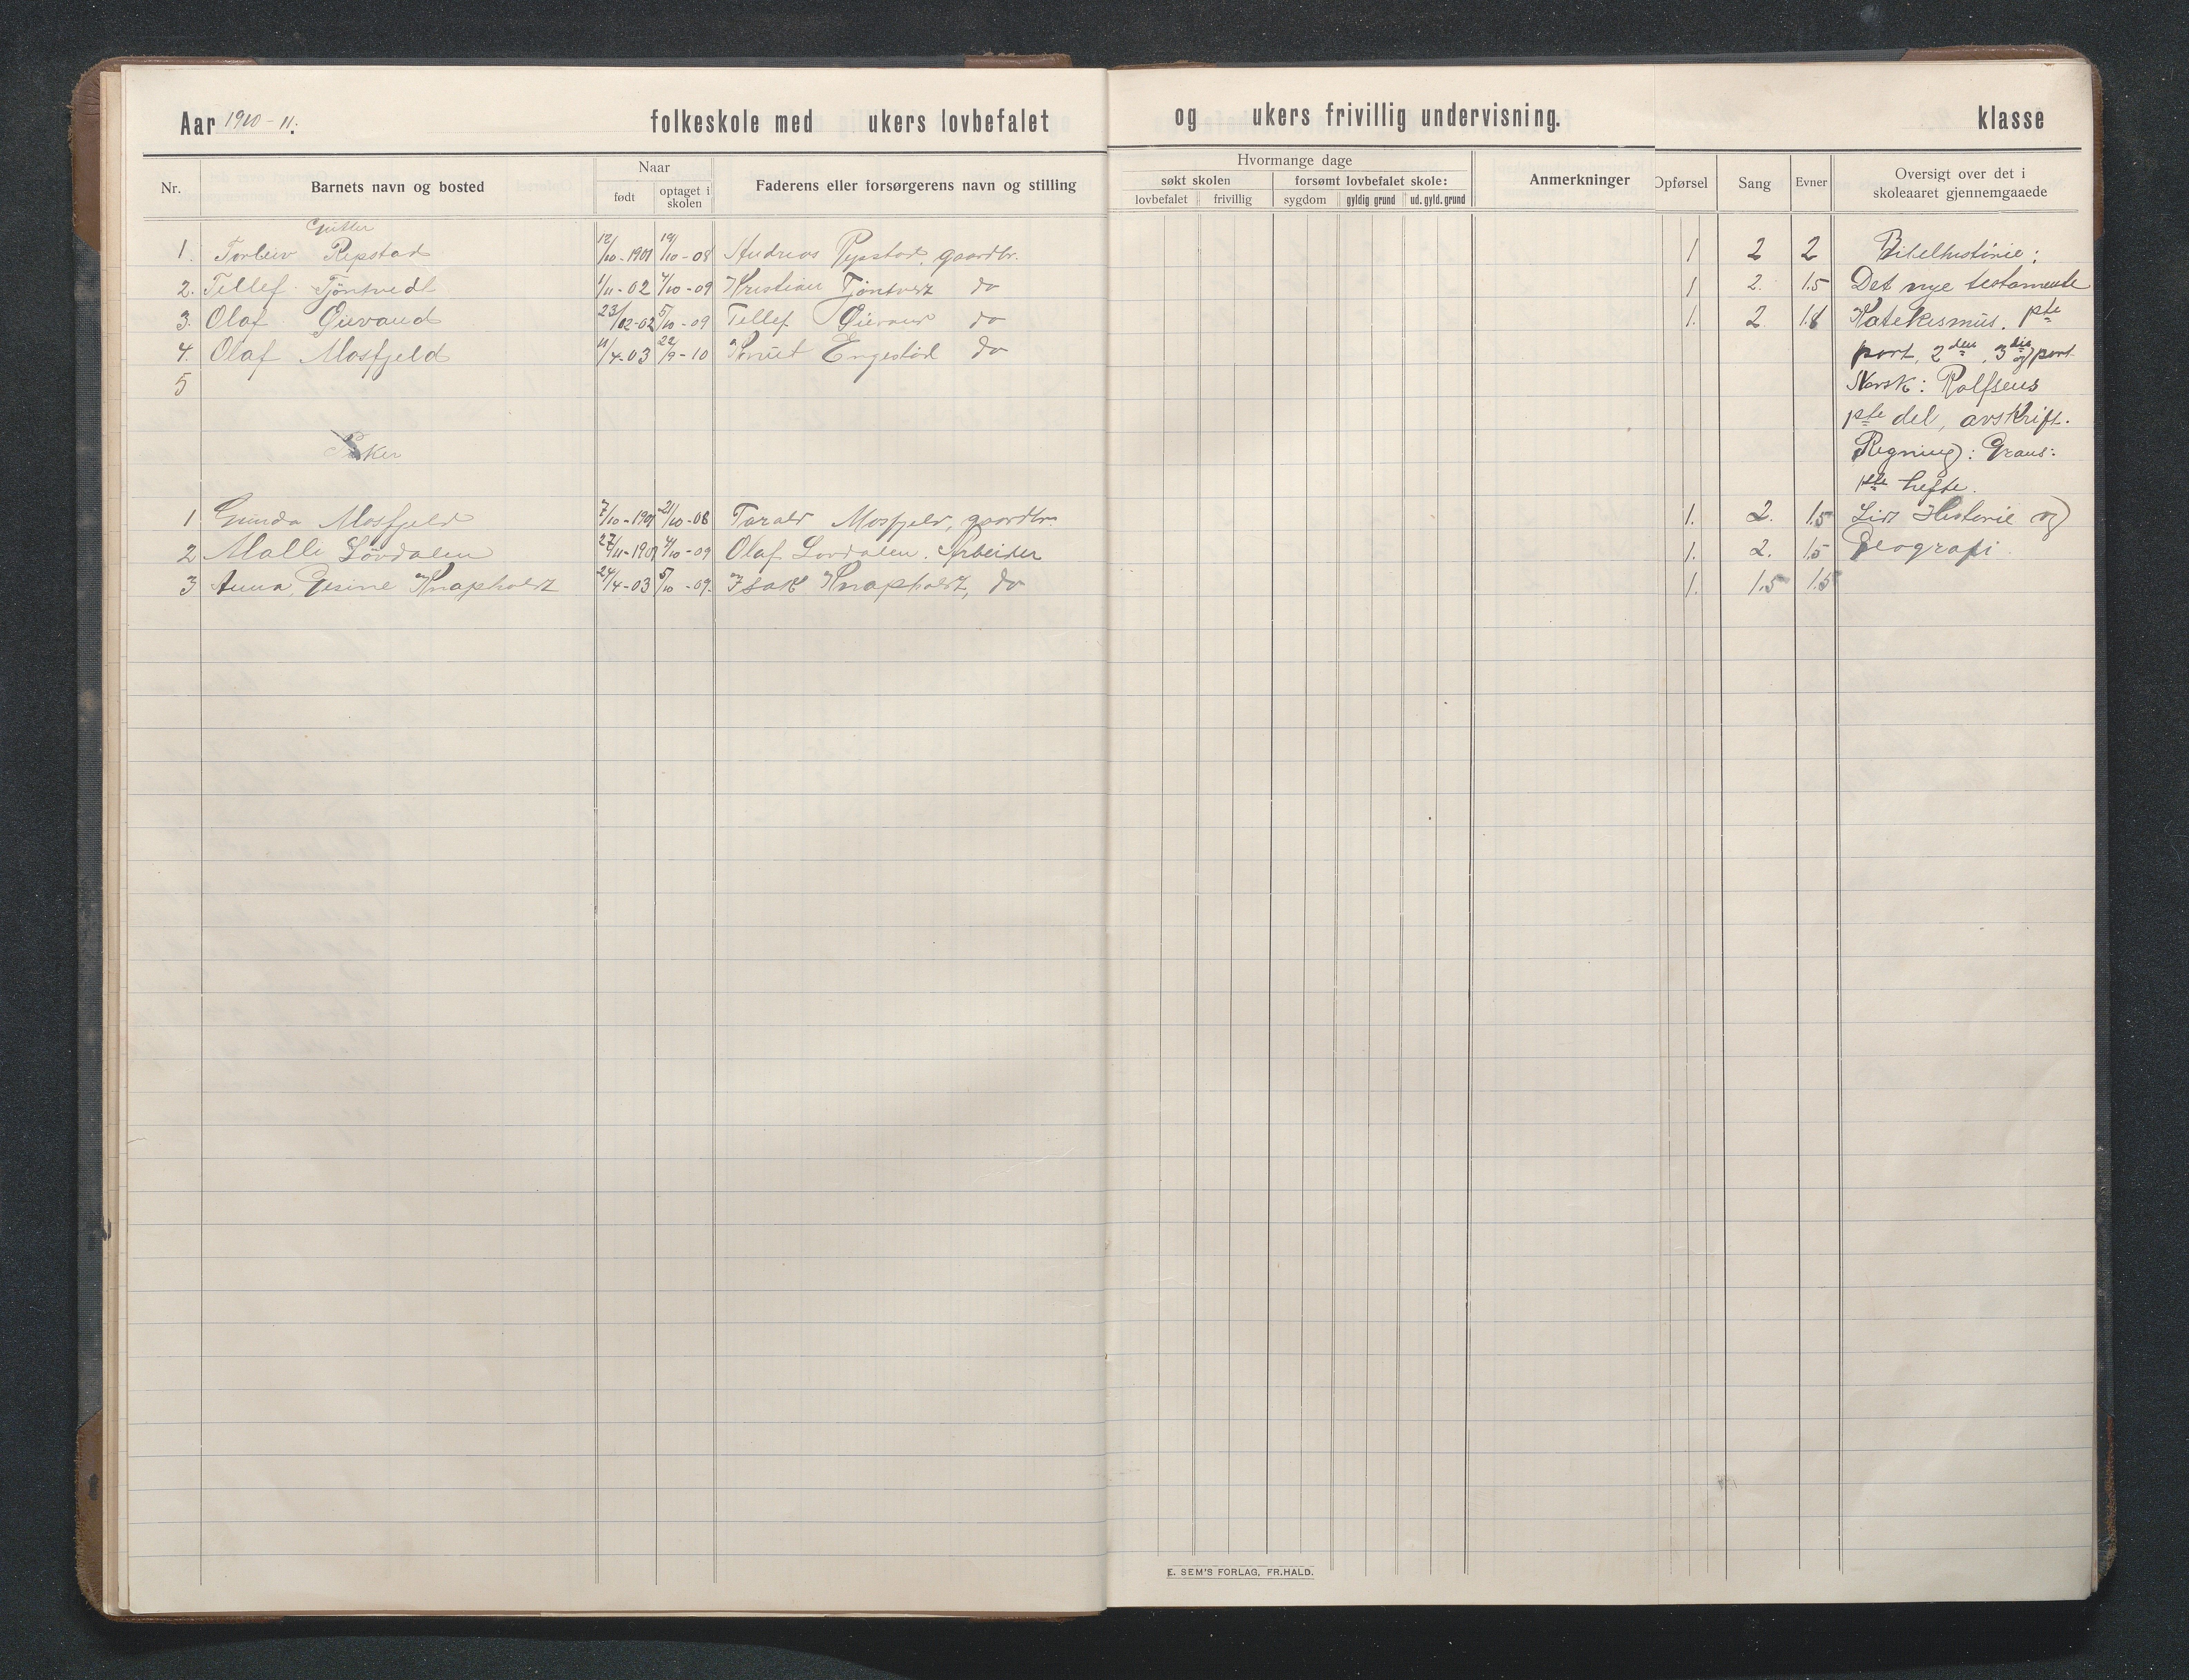 Aar 1910-11. folkeskole med ukers lovbefalet og ukers frivillig undervisning. klasse
Nr. Barnets navn og bosted Naar Faderens eller forsørgerens navn og stilling Hvormange dage Anmerkninger Opførsel Sang Evner Oversigt over det i skoleaaret gjennemgaaede
født optaget i skolen søkt skolen forsømt lovbefalet skole:
lovbefalet frivillig sygdom gyldig grund ud. gyld. grund
Gutter
1. Torleiv Repstad 12/10-1901 19/10-08 Andreas Repstad, gaardbr. 1 2 2 Bibelhistorie:
2. Tellef Tjöntvedt 1/11-02 4/10-09 Kristian Tjöntvedt do 1 2. 1.5 Det nye testamente
3. Olaf Øievand 23/12-02 5/10-09 Tellef Øievand do 1. 2 1.8 Katekismus. 1ste
4. Olaf Mosfjeld 11/4-03 22/9-10 Knut Engestöl do part, 2den, 3die og part
5 Norsk: Rolfsens
1ste del, avskrift.
Piker Regning: Graus:
1ste hefte.
1 Gunda Mosfjeld 7/10-1901 21/10-08 Tarald Mosfjeld, gaardbr. 1. 2. 1.5 Lidt Historie og
2 Malli Lövdalen 27/11-1901 4/10-09 Olaf Lovdalen. Arbeider 1. 2. 1.5 Geografi.
3 Anna Gesine Knapholdt 24/4-03 5/10-09. Isak Knapholdt, do 1. 1.5 1.5
E. SEM'S FORLAG, FR.HALD.